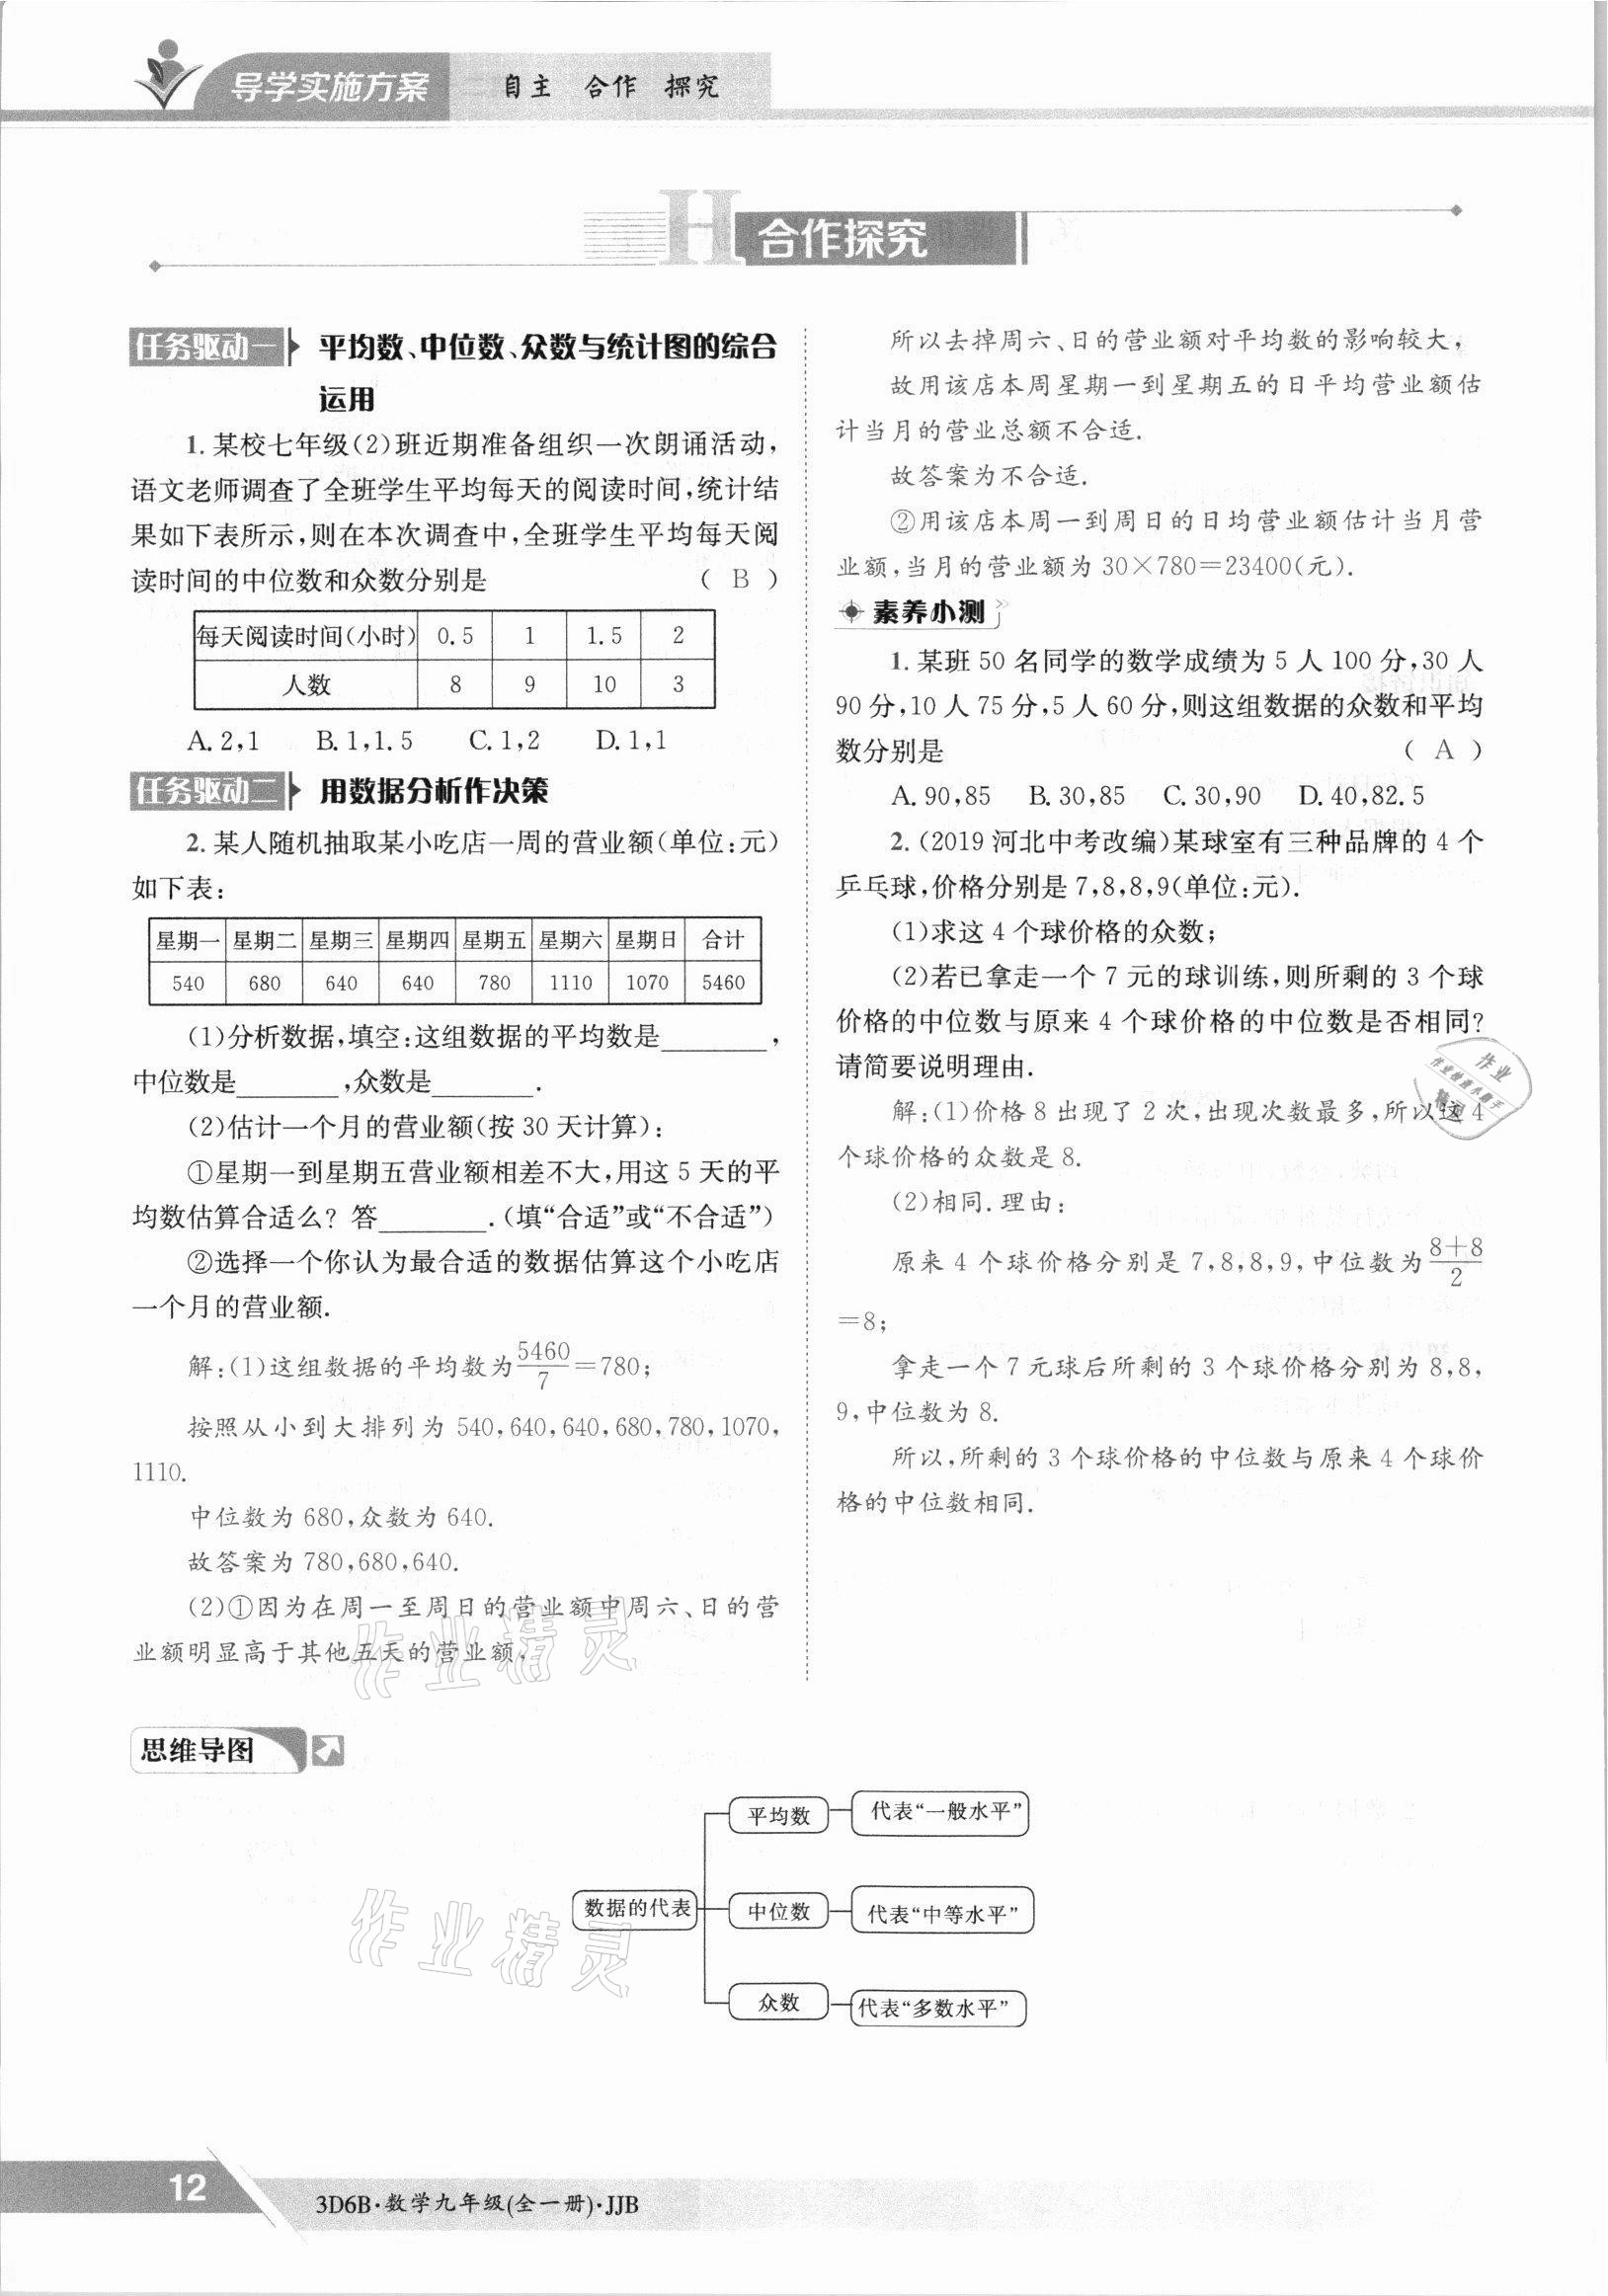 导学实施方案 自主 合作 探究
H 合作探究
任务驱动一 平均数、中位数、众数与统计图的综合
运用
1. 某校七年级(2)班近期准备组织一次朗诵活动,
语文老师调查了全班学生平均每天的阅读时间,统计结
果如下表所示,则在本次调查中,全班学生平均每天阅
读时间的中位数和众数分别是 ( B )
每天阅读时间(小时) 0.5 1 1.5 2
人数 8 9 10 3
A. 2,1 B. 1,1.5 C. 1,2 D. 1,1
任务驱动二 用数据分析作决策
2. 某人随机抽取某小吃店一周的营业额(单位:元)
如下表:
星期一 星期二 星期三 星期四 星期五 星期六 星期日 合计
540 680 640 640 780 1110 1070 5460
(1)分析数据,填空:这组数据的平均数是________,
中位数是________,众数是________.
(2)估计一个月的营业额(按 30 天计算):
①星期一到星期五营业额相差不大,用这 5 天的平
均数估算合适么? 答________.(填“合适”或“不合适”)
②选择一个你认为最合适的数据估算这个小吃店
一个月的营业额.
解:(1)这组数据的平均数为5460/7=780;
按照从小到大排列为 540,640,640,680,780,1070,
1110.
中位数为 680,众数为 640.
故答案为 780,680,640.
(2)①因为在周一至周日的营业额中周六、日的营
业额明显高于其他五天的营业额,
所以去掉周六、日的营业额对平均数的影响较大,
故用该店本周星期一到星期五的日平均营业额估
计当月的营业总额不合适.
故答案为不合适.
②用该店本周一到周日的日均营业额估计当月营
业额,当月的营业额为 30×780=23400(元).
素养小测
1. 某班 50 名同学的数学成绩为 5 人 100 分,30 人
90 分,10 人 75 分,5 人 60 分,则这组数据的众数和平均
数分别是 ( A )
A. 90,85 B. 30,85 C. 30,90 D. 40,82.5
2. (2019 河北中考改编)某球室有三种品牌的 4 个
乒乓球,价格分别是 7,8,8,9(单位:元).
(1)求这 4 个球价格的众数;
(2)若已拿走一个 7 元的球训练,则所剩的 3 个球
价格的中位数与原来 4 个球价格的中位数是否相同?
请简要说明理由.
解:(1)价格 8 出现了 2 次,出现次数最多,所以这 4
个球价格的众数是 8.
(2)相同.理由:
原来 4 个球价格分别是 7,8,8,9,中位数为8+8/2
=8;
拿走一个 7 元球后所剩的 3 个球价格分别为 8,8,
9,中位数为 8.
所以,所剩的 3 个球价格的中位数与原来 4 个球价
格的中位数相同.
作业精灵
思维导图
平均数 代表“一般水平”
数据的代表 中位数 代表“中等水平”
众数 代表“多数水平”
作业精灵
12
3D6B·数学九年级(全一册)·JJB